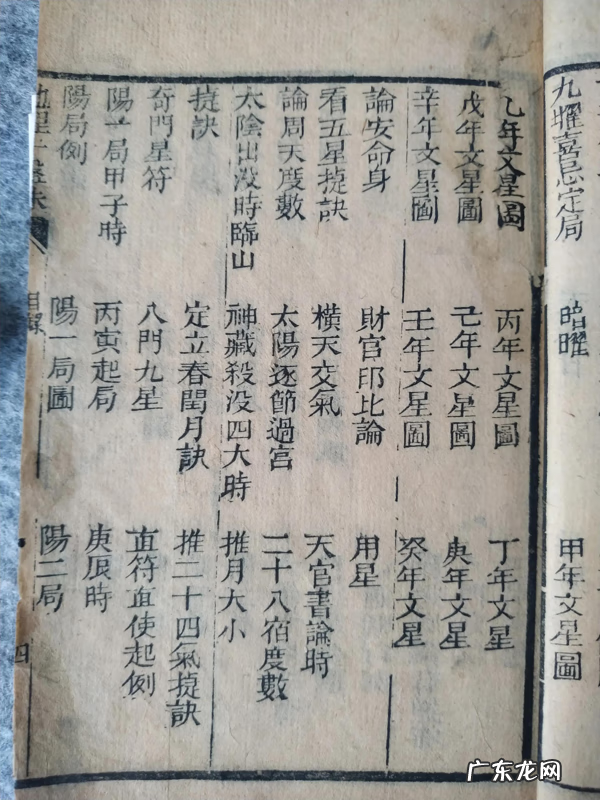 九曜喜忌定局 暗曜 甲年文星圖
乙年文星圖 丙年文星圖 丁年文星
戊年文星圖 己年文星圖 庚年文星
辛年文星圖 壬年文星圖 癸年文星
論安命身 財官印比論 用星
看五星捷訣 橫天交氣 天官書論時
論周天度數 太陽逐節過宮 二十八宿度數
太陰出没時臨山 神藏殺没四大時 推月大小
捷訣 定立春閏月訣 推二十四氣捷訣
奇門星符 八門九星 直符直使起例
陽一局甲子時 丙寅起局 庚辰時
陽局例 陽一局圖 陽二局
目錄 四
广东龙网